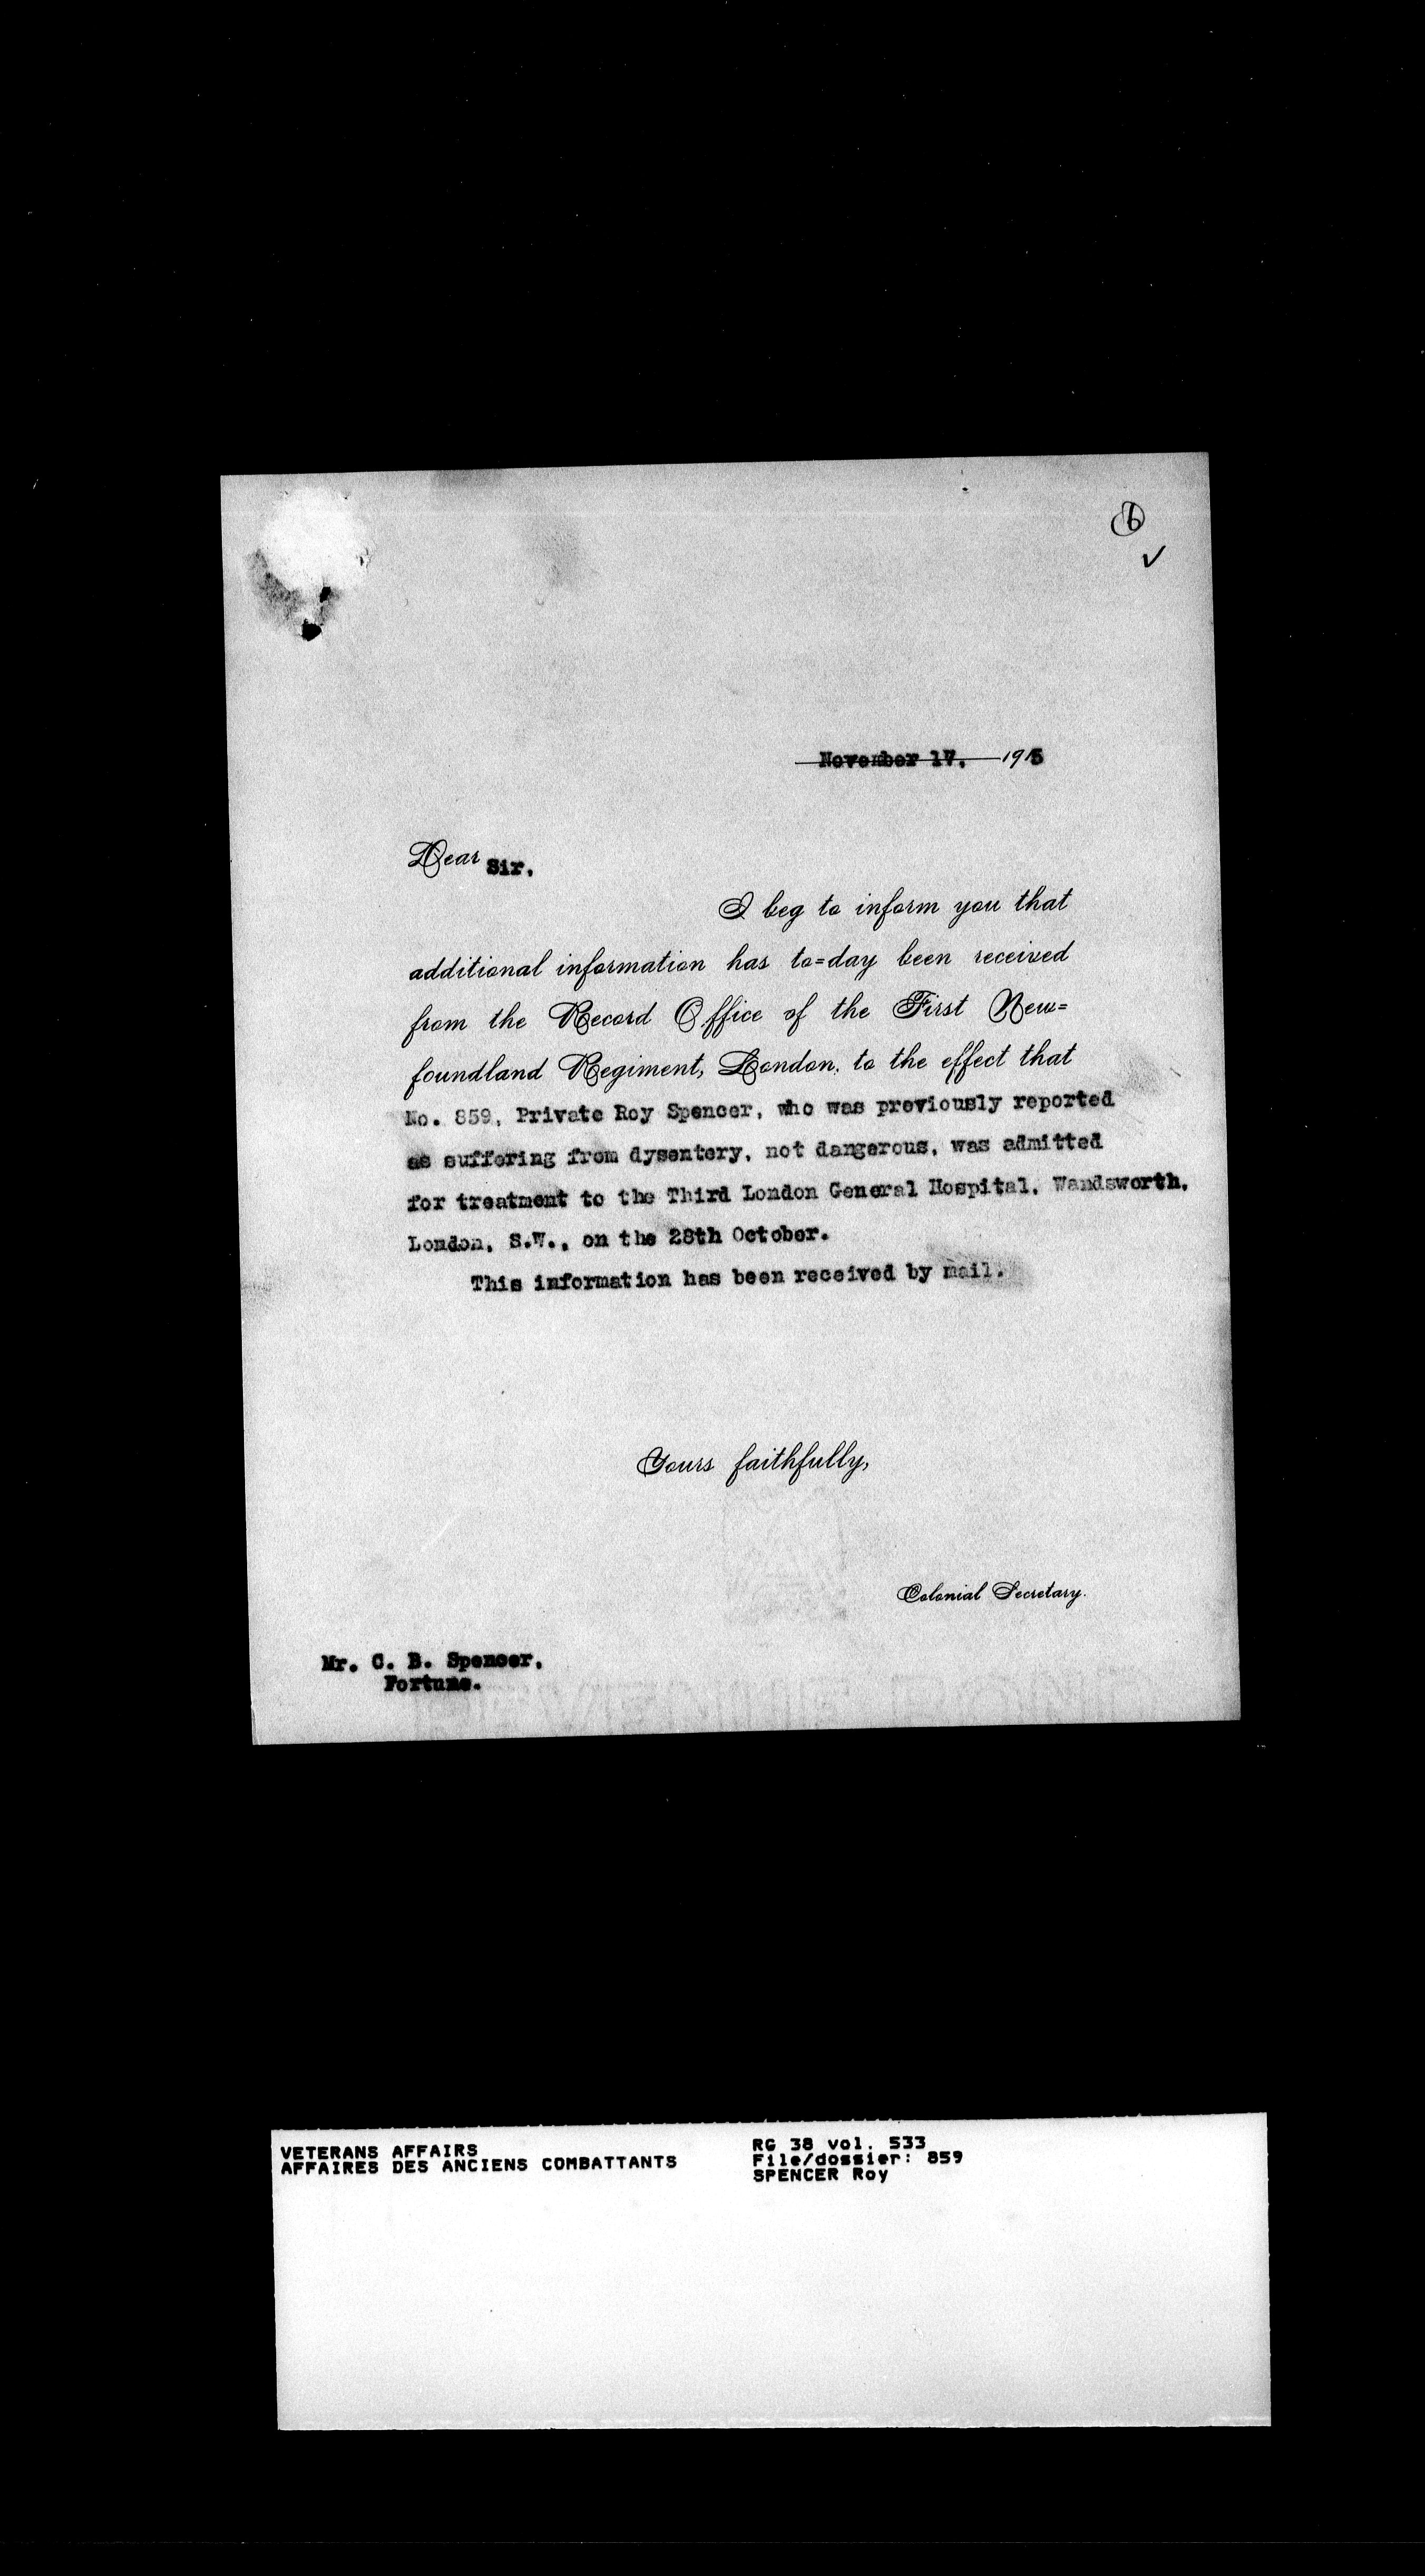 6
November 17, 1915
Dear Sir,
I beg to inform you that
additional information has to=day been received
from the Record Office of the First New=
foundland Regiment, London, to the effect that
No. 859, Private Roy Spencer, who was previously reported
as suffering from dysentery, not dangerous, was admitted
for treatment to the Third London General Hospital, Wandsworth,
London, S.W., on the 28th October.
This information has been received by mail.
Yours faithfully,
Colonial Secretary.
Mr. C. B. Spencer,
Fortune.
VETERANS AFFAIRS
AFFAIRES DES ANCIENS COMBATTANTS
RG 38 vol. 533
File/dossier: 859
SPENCER Roy